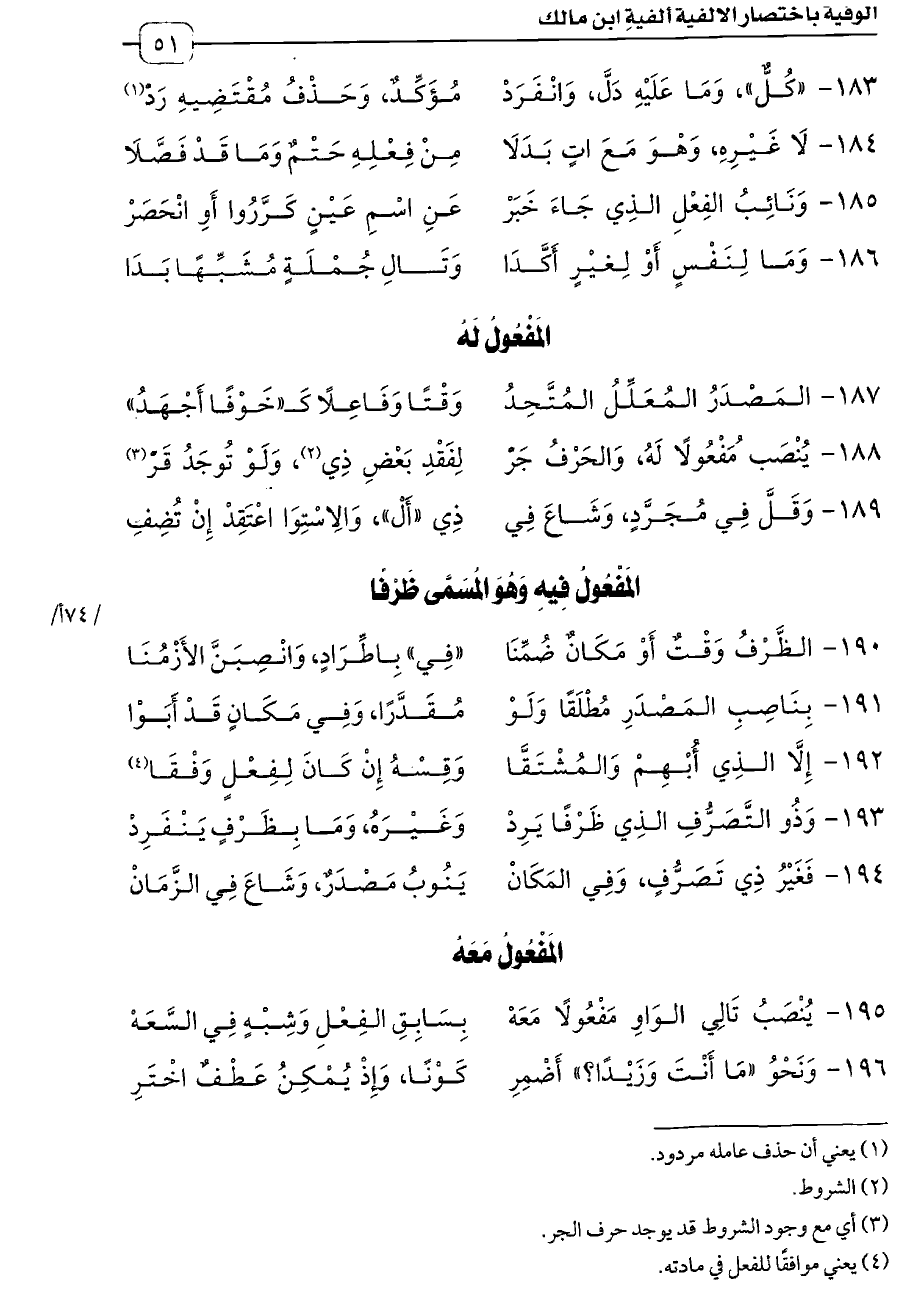 الوفية باختصار الألفية ألفية ابن مالك
٥١
١٨٣- «كُلٌّ»، وَمَا عَلَيْهِ دَلَّ، وَانْفَرَدْ مُؤَكِّدٌ، وَحَذْفُ مُقْتَضِيهِ رَدْ(١)
١٨٤- لَا غَيْرِهِ، وَهْوَ مَعَ اتٍ بَدَلَا مِنْ فِعْلِهِ حَتْمٌ وَمَا قَدْ فَصَّلَا
١٨٥- وَنَائِبُ الفِعْلِ الَّذِي جَاءَ خَبَرْ عَنِ اسْمِ عَيْنٍ كَرَّرُوا أَوِ انْحَصَرْ
١٨٦- وَمَا لِنَفْسٍ أَوْ لِغيْرٍ أَكَّدَا وَتَالِ جُمْلَةٍ مُشَبِّهًا بَدَا
المَفْعُولُ لَهُ
١٨٧- المَصْدَرُ المُعَلِّلُ المُتَّحِدُ وَقْتًا وَفَاعِلًا كَـ«خَوْفًا أَجْهَدُ»
١٨٨- يُنْصَب مَفْعُولًا لَهُ، وَالحَرْفُ جَرْ لِفَقْدِ بَعْضِ ذِي(٢)، وَلَوْ تُوجَدُ قَرْ(٣)
١٨٩- وَقَلَّ فِي مُجَرَّدٍ، وَشَاعَ فِي ذِي «أَلْ»، وَالِاسْتِوَا اعْتَقِدْ إِنْ تُضِفِ
المَفْعُولُ فِيهِ وَهُوَ المُسَمَّى ظَرْفًا
/٧٤أ/
١٩٠- الظَّرْفُ وَقْتٌ أَوْ مَكَانٌ ضُمِّنَا «فِي» بِاطِّرَادٍ، وَانْصِبَنَّ الأَزْمُنَا
١٩١- بِنَاصِبِ المَصْدَرِ مُطْلَقًا وَلَوْ مُقَدَّرًا، وَفِي مَكَانٍ قَدْ أَبَوْا
١٩٢- إِلَّا الَّذِي أُبْهِمْ وَالمُشْتَقَّا وَقِسْهُ إِنْ كَانَ لِفِعْلٍ وَفْقَا(٤)
١٩٣- وَذُو التَّصَرُّفِ الَّذِي ظَرْفًا يَرِدْ وَغَيْرَهُ، وَمَا بِظَرْفٍ يَنْفَرِدْ
١٩٤- فَغَيْرُ ذِي تَصَرُّفٍ، وَفِي المَكَانْ يَنُوبُ مَصْدَرٌ، وَشَاعَ فِي الزَّمَانْ
المَفْعُولُ مَعَهُ
١٩٥- يُنْصَبُ تَالِي الوَاوِ مَفْعُولًا مَعَهْ بِسَابِقِ الفِعْلِ وَشِبْهٍ فِي السَّعَهْ
١٩٦- وَنَحْوُ «مَا أَنْتَ وَزَيْدًا؟» أَضْمِرِ كَوْنًا، وَإِذْ يُمْكِنُ عَطْفٌ اخْتَرِ
(١) يعني أن حذف عامله مردود.
(٢) الشروط.
(٣) أي مع وجود الشروط قد يوجد حرف الجر.
(٤) يعني موافقًا للفعل في مادته.